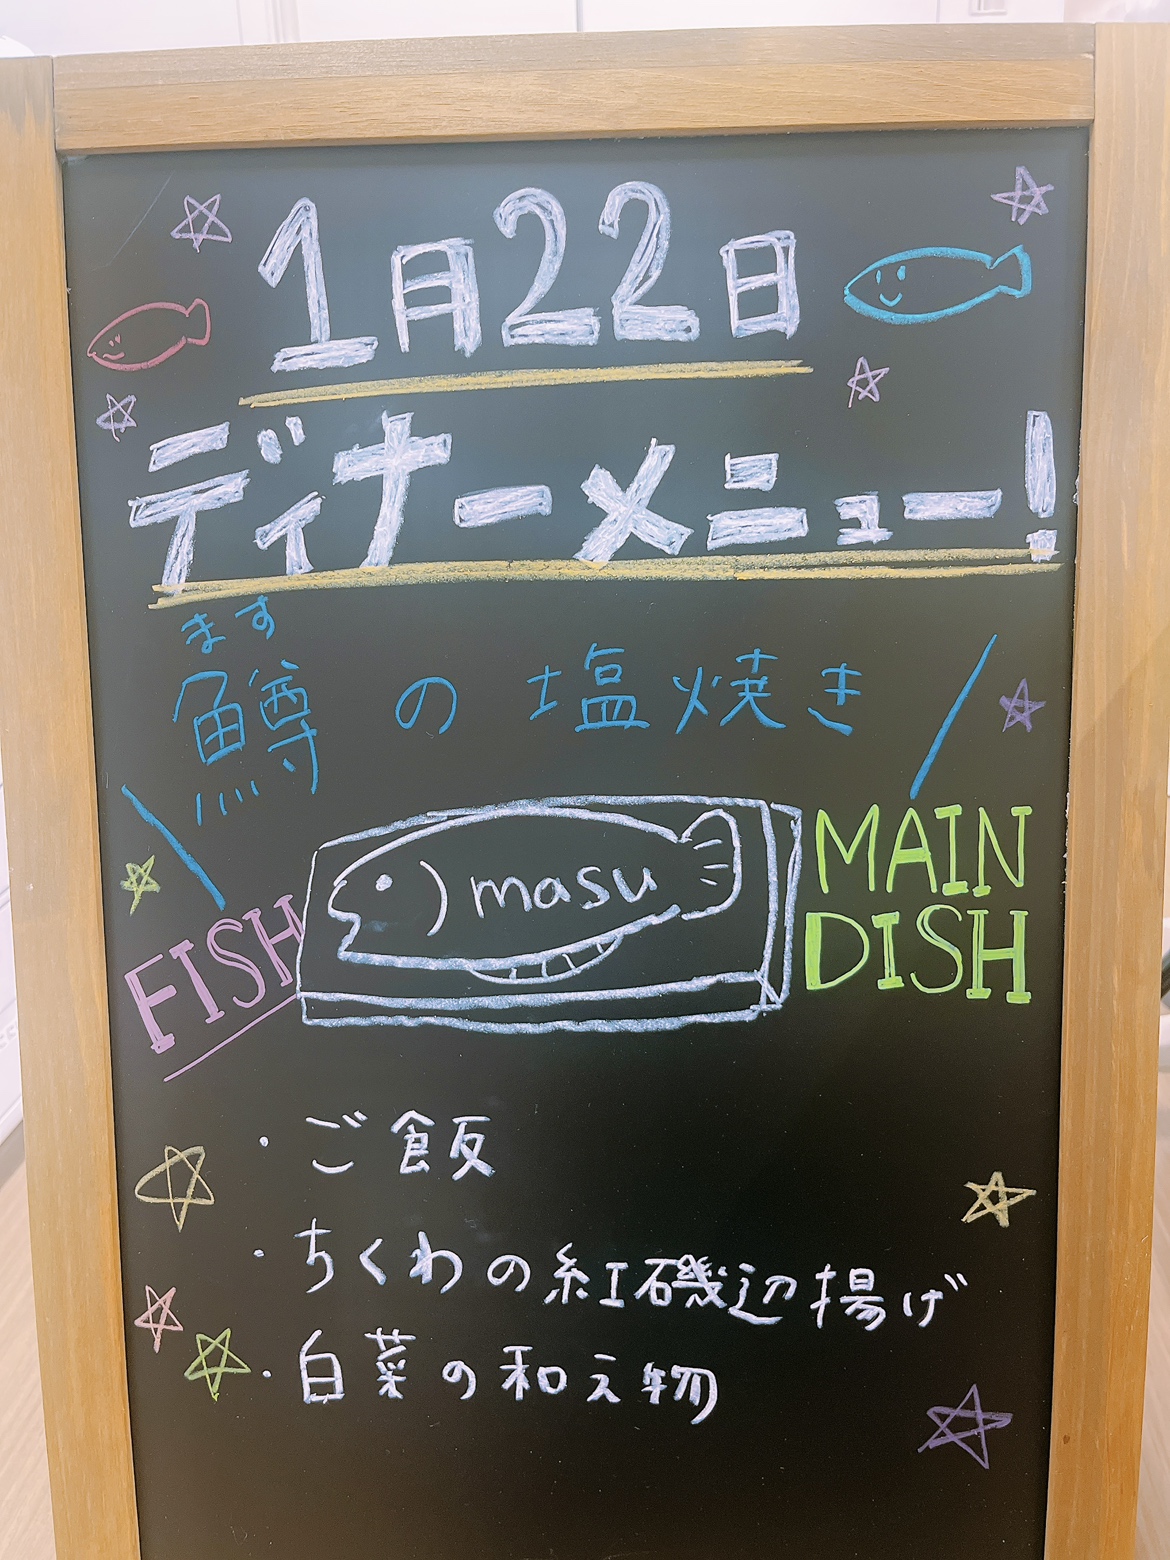 1月22日
ディナーメニュー!
ます
鱒の塩焼き
masu
MAIN
DISH
FISH
・ご飯
・ちくわの紅磯辺揚げ
・白菜の和え物